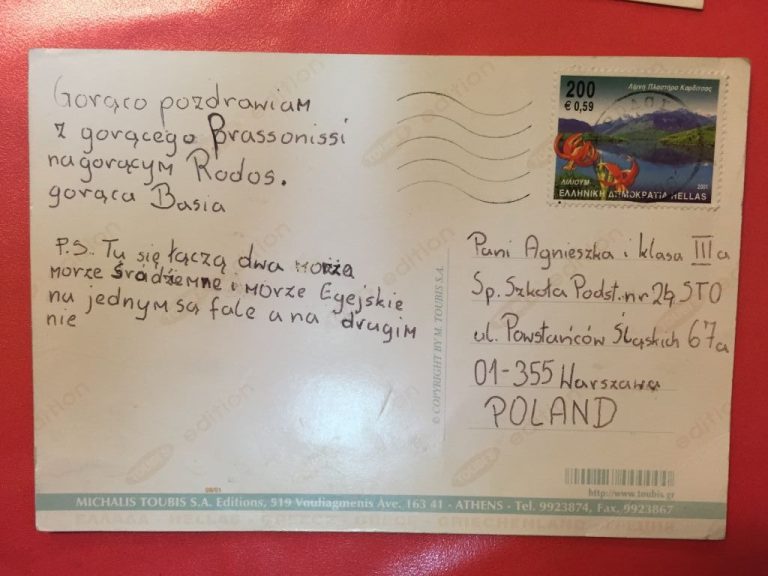 Gorąco pozdrawiam
z gorącego Brassonissi
na gorącym Rodos.
gorąca Basia
P.S. Tu się łączą dwa morza
morze Śródziemne i morze Egejskie
na jednym są fale a na drugim
nie
200
€ 0,59
Λίμνη Πλαστήρα Καρδίτσας
ΛΙΛΙΟΥΜ
2001
ΕΛΛΗΝΙΚΗ ΔΗΜΟΚΡΑΤΙΑ HELLAS
Pani Agnieszka i klasa IIIa
Sp. Szkoła Podst. nr 24 STO
ul. Powstańców Śląskich 67a
01-355 Warszawa
POLAND
© COPYRIGHT BY M. TOUBIS S.A.
TOUBI'S edition
08/01
http://www.toubis.gr
MICHALIS TOUBIS S.A. Editions, 519 Vouliagmenis Ave. 163 41 - ATHENS - Tel. 9923874, Fax. 9923867
ΕΛΛΑΔΑ HELLAS GREECE GRECE GRIECHENLAND